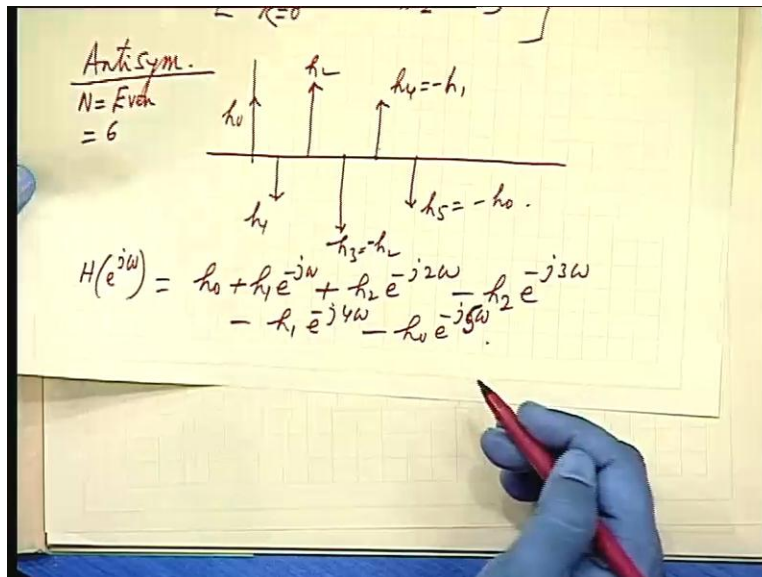 K=0 2
Antisym.
N = Even
= 6
h0
h2
h4 = -h1
h1
h3 = -h2
h5 = -h0.
H(e^{jω}) = h0 + h1 e^{-jω} + h2 e^{-j2ω} - h2 e^{-j3ω}
- h1 e^{-j4ω} - h0 e^{-j5ω}.